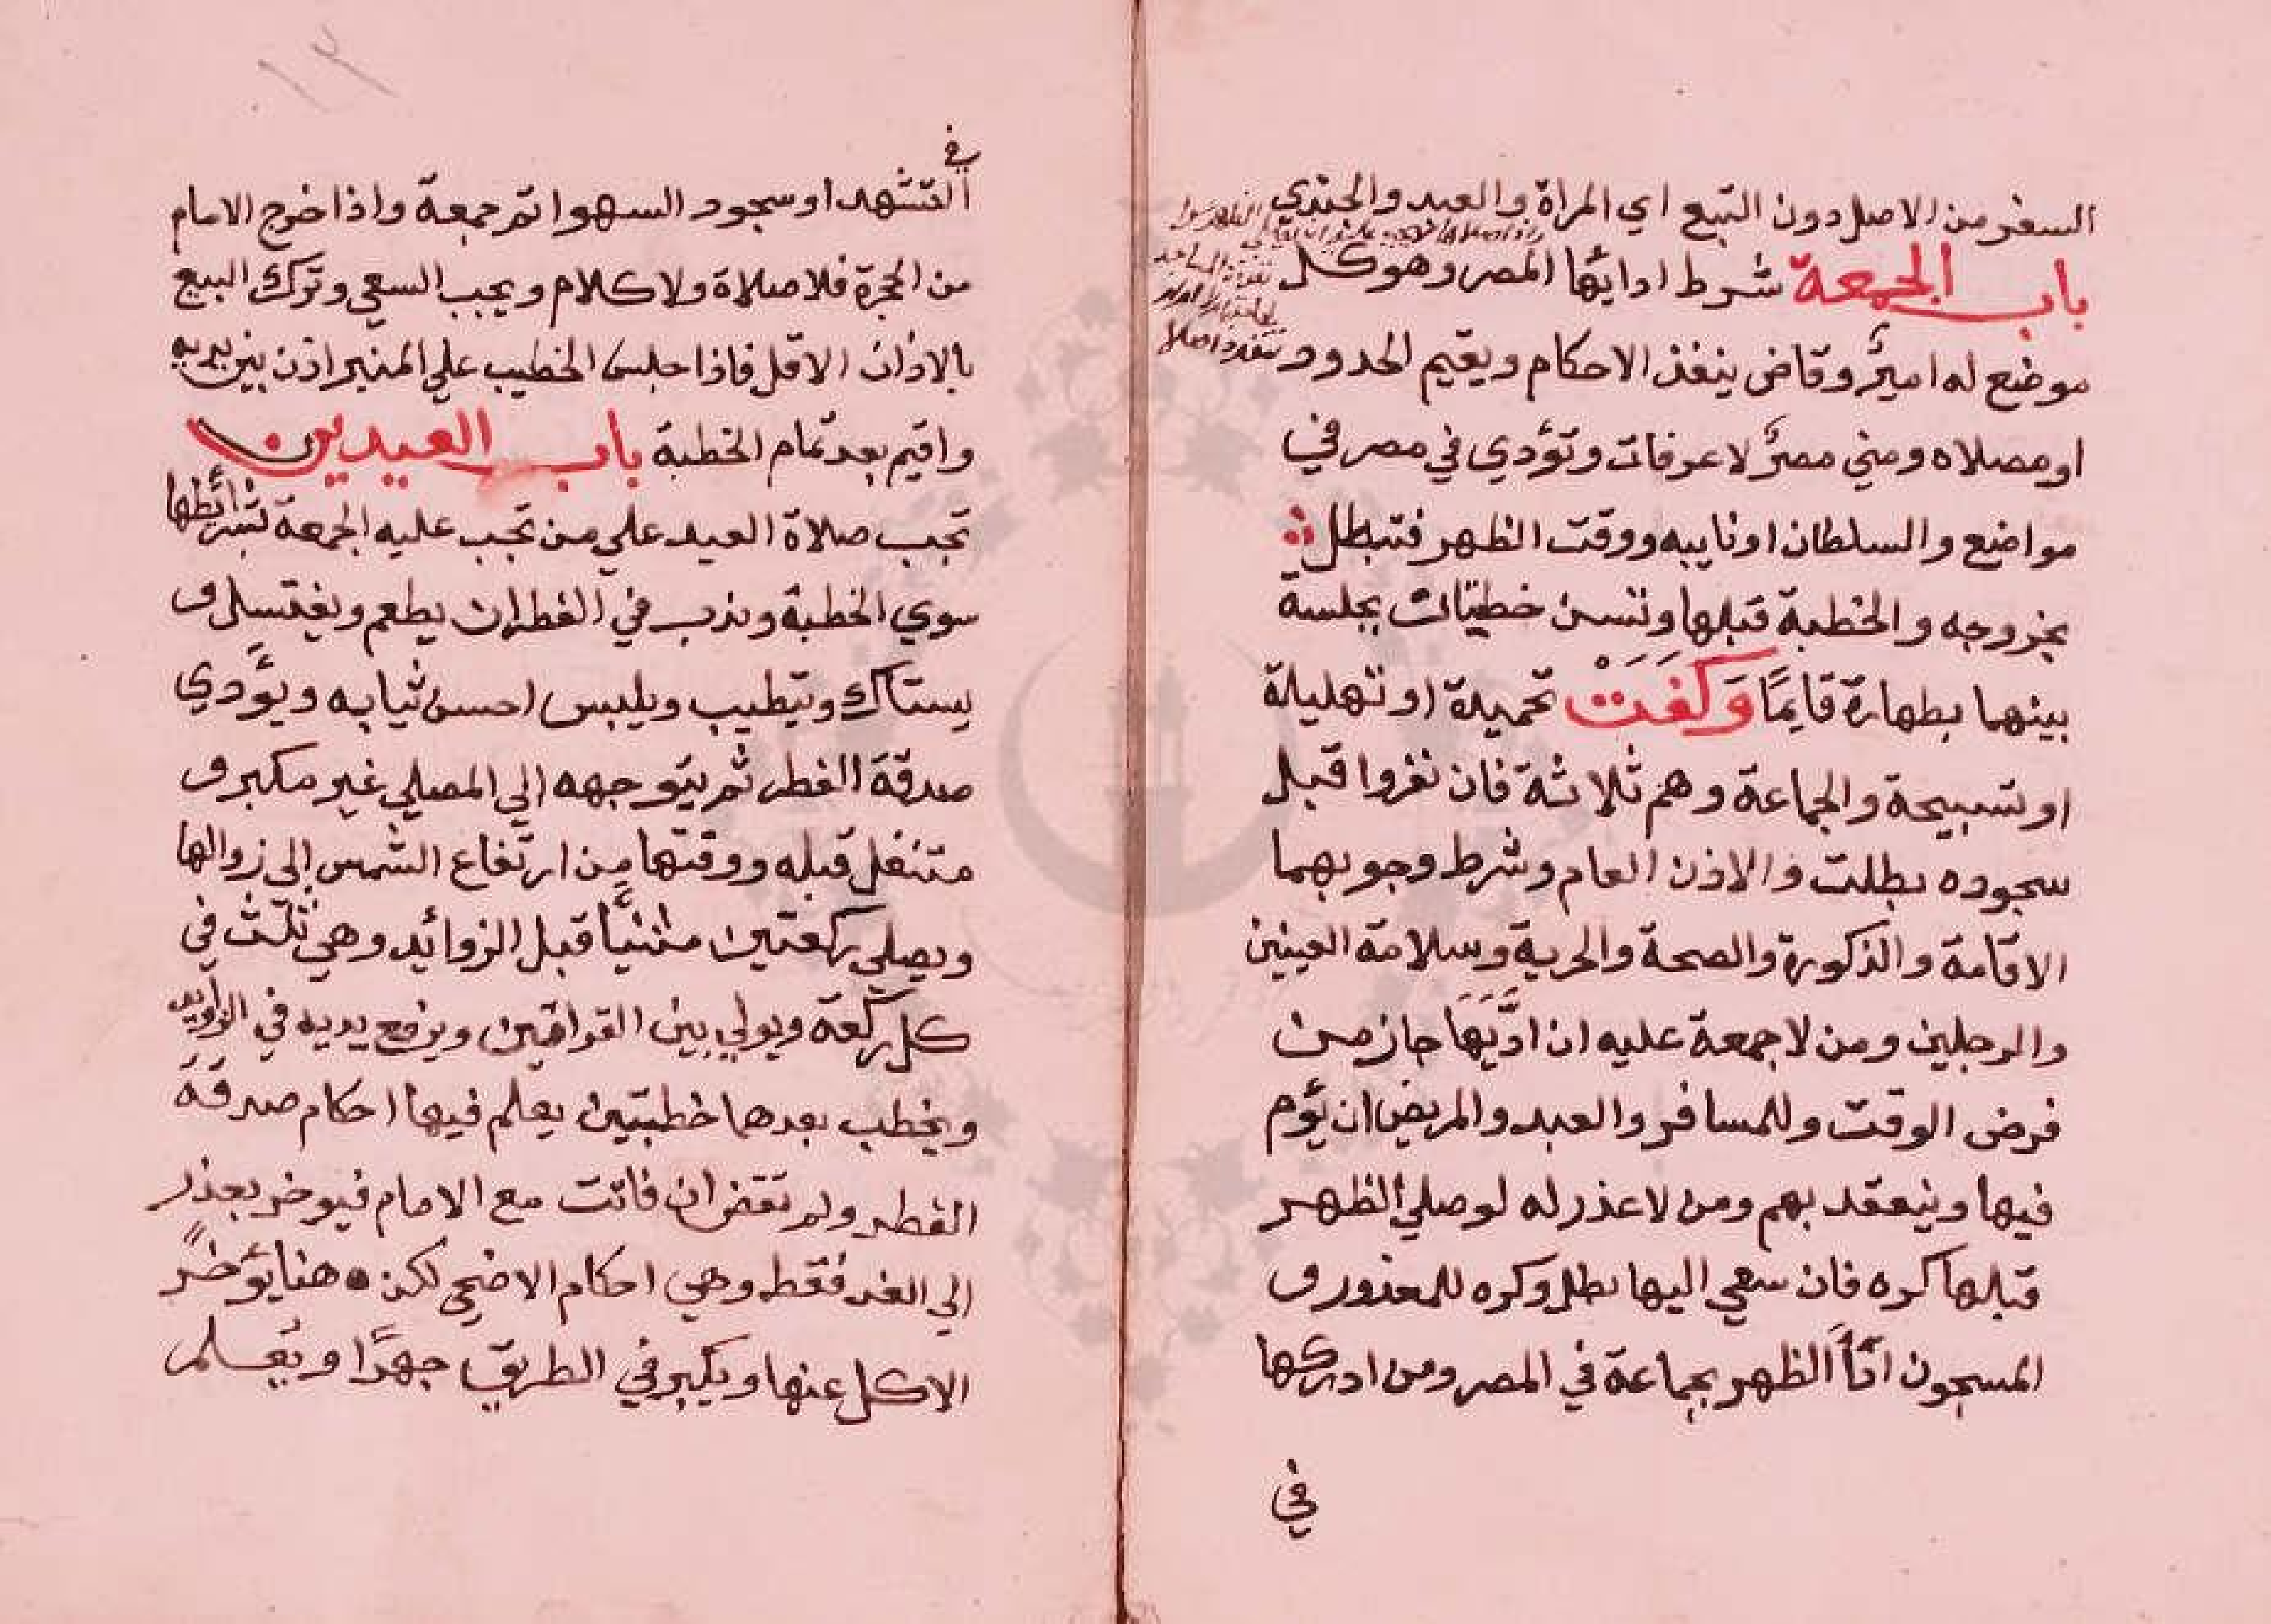 السفر من الاصل دون التبع اي المراة والعبد والجندي
باب الجمعة شرط ادائها المصر وهو كل
موضع له اميرٌ وقاض ينفذ الاحكام ويقيم الحدود
او مصلاه ومني مصرٌ لا عرفات وتؤدي في مصر في
مواضع والسلطان او نايبه ووقت الظهر فتبطل
بخروجه والخطبة قبلها وتسن خطبتان بجلسة
بينهما بطهارة قايمًا وَكَفَتْ تحميدة او تهليلة
او تسبيحة والجماعة وهم ثلاثة فان نفروا قبل
سجوده بطلت والاذن العام وشرط وجوبهما
الاقامة والذكورة والصحة والحرية وسلامة العينين
والرجلين ومن لا جمعة عليه ان ادَّيَهَا جاز من
فرض الوقت وللمسافر والعبد والمريض ان يؤم
فيها وينعقد بهم ومن لا عذر له لو صلي الظهر
قبلها كره فان سعي اليها بطل وكره للمعذور و
المسجون ادَأ الظهر بجماعة في المصر ومن ادركها
في
في
التشهد او سجود السهو اتم جمعة واذا خرج الامام
من الحجرة فلا صلاة ولا كلام ويجب السعي وترك البيع
بالاذان الاول فاذا جلس الخطيب علي المنبر اذن بين يديه
واقيم بعد تمام الخطبة باب العيدين
تجب صلاة العيد علي من تجب عليه الجمعة بشرائطها
سوي الخطبة وندب في الفطر ان يطعم ويغتسل و
يستاك ويتطيب ويلبس احسن ثيابه ويؤدي
صدقة الفطر ثم يتوجهه الي المصلي غير مكبر و
متنفل قبله ووقتها من ارتفاع الشمس إلى زوالها
ويصلي ركعتين مثنيًا قبل الزوائد وهي ثلث في
كل ركعة ويولي بين القراتين ويرفع يديه في الزوايد
ويخطب بعدها خطبتين يعلم فيها احكام صدقَة
الفطر ولم تقض ان فاتت مع الامام فيوخر بعذر
الي الغد فقط وهي احكام الاضحي لكن ه هنا يؤخرُ
الاكل عنها ويكبر في الطريق جهرًا ويعلم